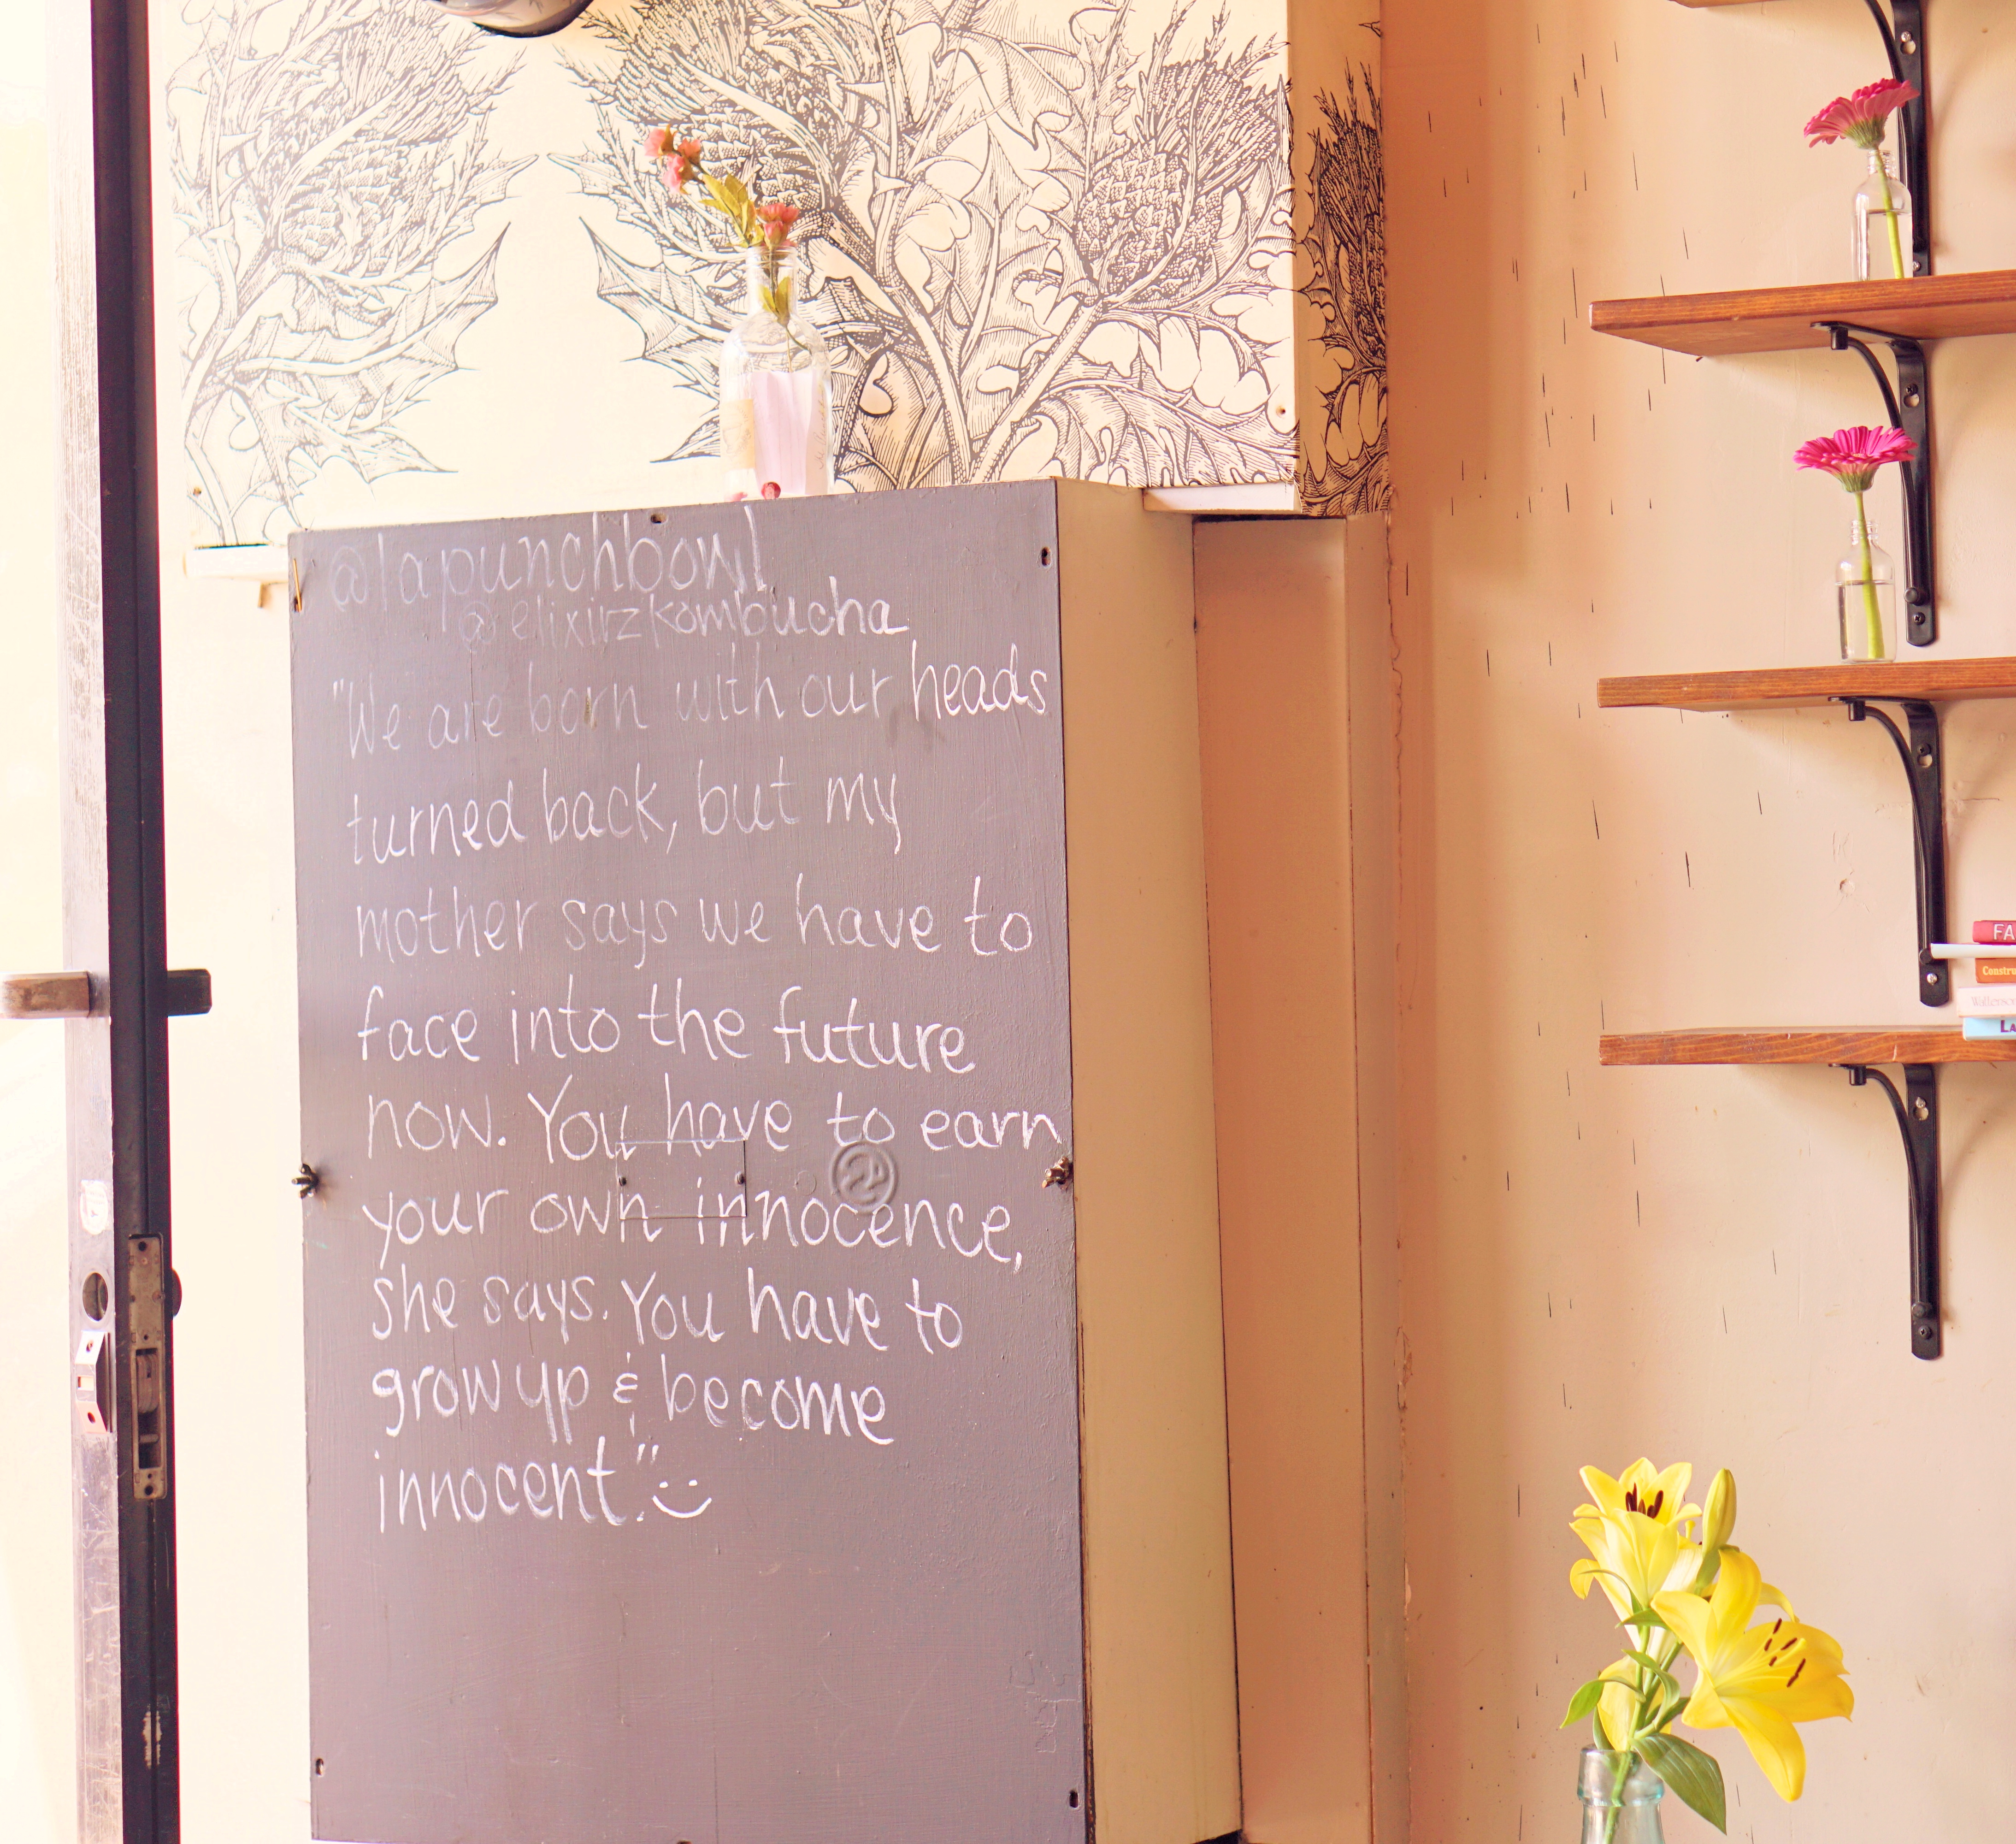 @lapunchbowl
@elixirzkombucha
"We are born with our heads
turned back, but my
mother says we have to
face into the future
now. You have to earn
your own innocence,
she says. You have to
grow up & become
innocent."
FA
Constru
LA